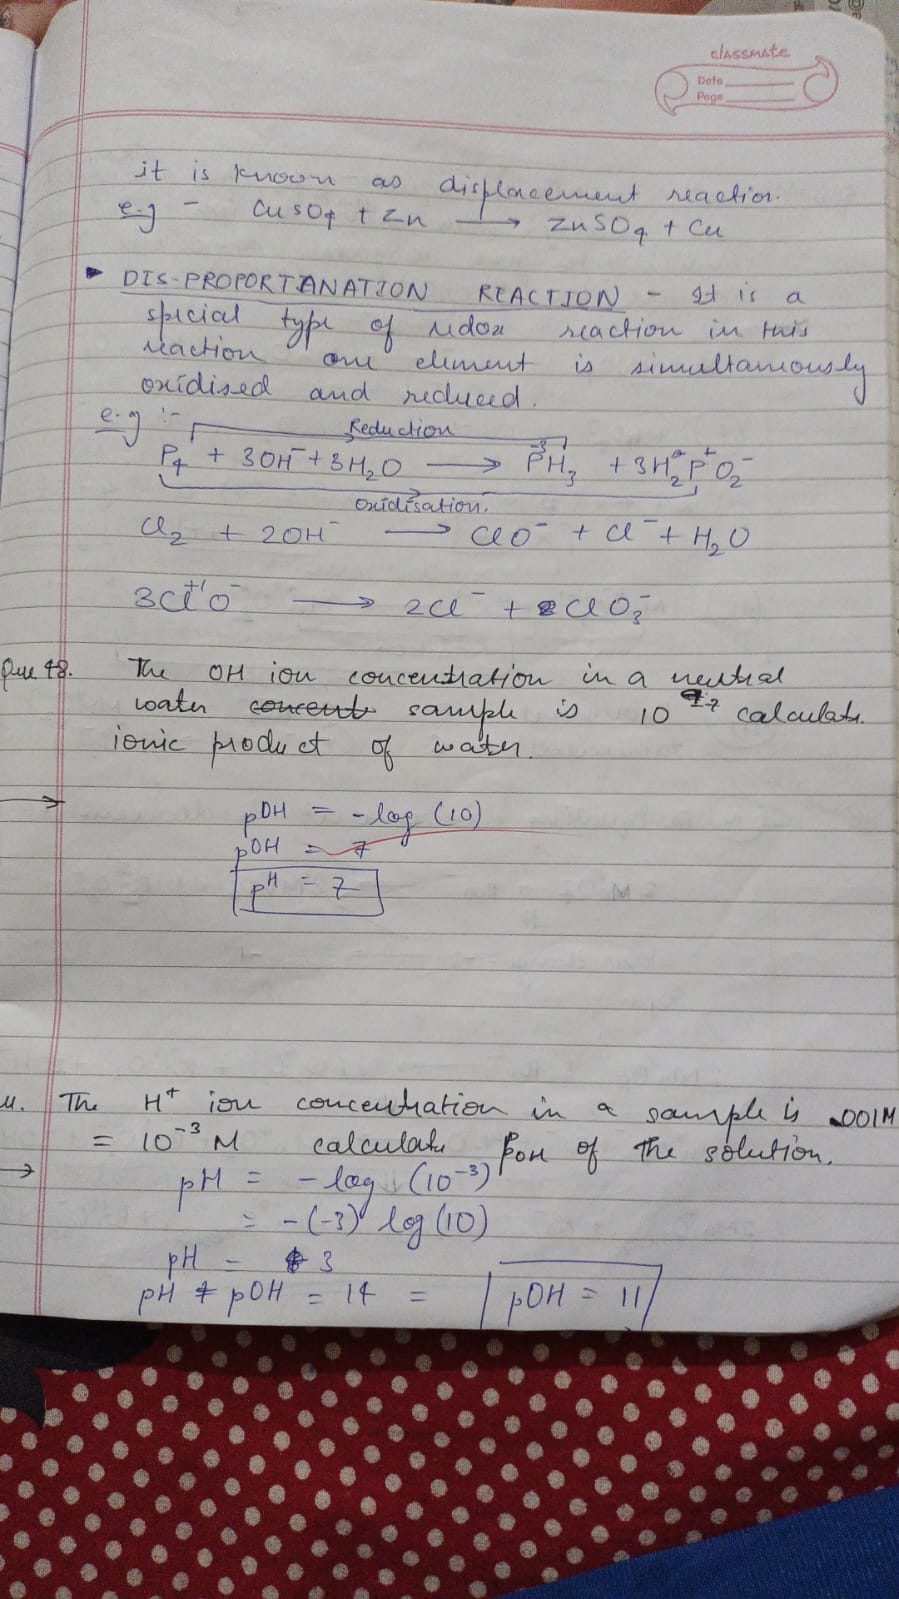 classmate
Date
Page
it is known as displacement reaction.
e.g - CuSO4 + Zn ⟶ ZnSO4 + Cu
DIS-PROPORTANATION REACTION - It is a
special type of redox reaction in this
reaction one element is simultaneously
oxidised and reduced.
e.g :-
Reduction
P4 + 3OH⁻ + 3H2O ⟶ P⁻³H3 + 3H2P⁺O2⁻
oxidisation.
Cl2 + 2OH⁻ ⟶ ClO⁻ + Cl⁻ + H2O
3Cl⁺¹O⁻ ⟶ 2Cl⁻ + ClO3⁻
Que 48. The OH ion concentration in a neutral
water concent sample is 10⁻⁷ calculate
ionic product of water.
pOH = -log (10)
pOH = 7
pH = 7
The H⁺ ion concentration in a sample is .001M
= 10⁻³ M calculate POH of the solution.
pH = -log (10⁻³)
= -(-3) log (10)
pH = 3
pH + pOH = 14 = pOH = 11